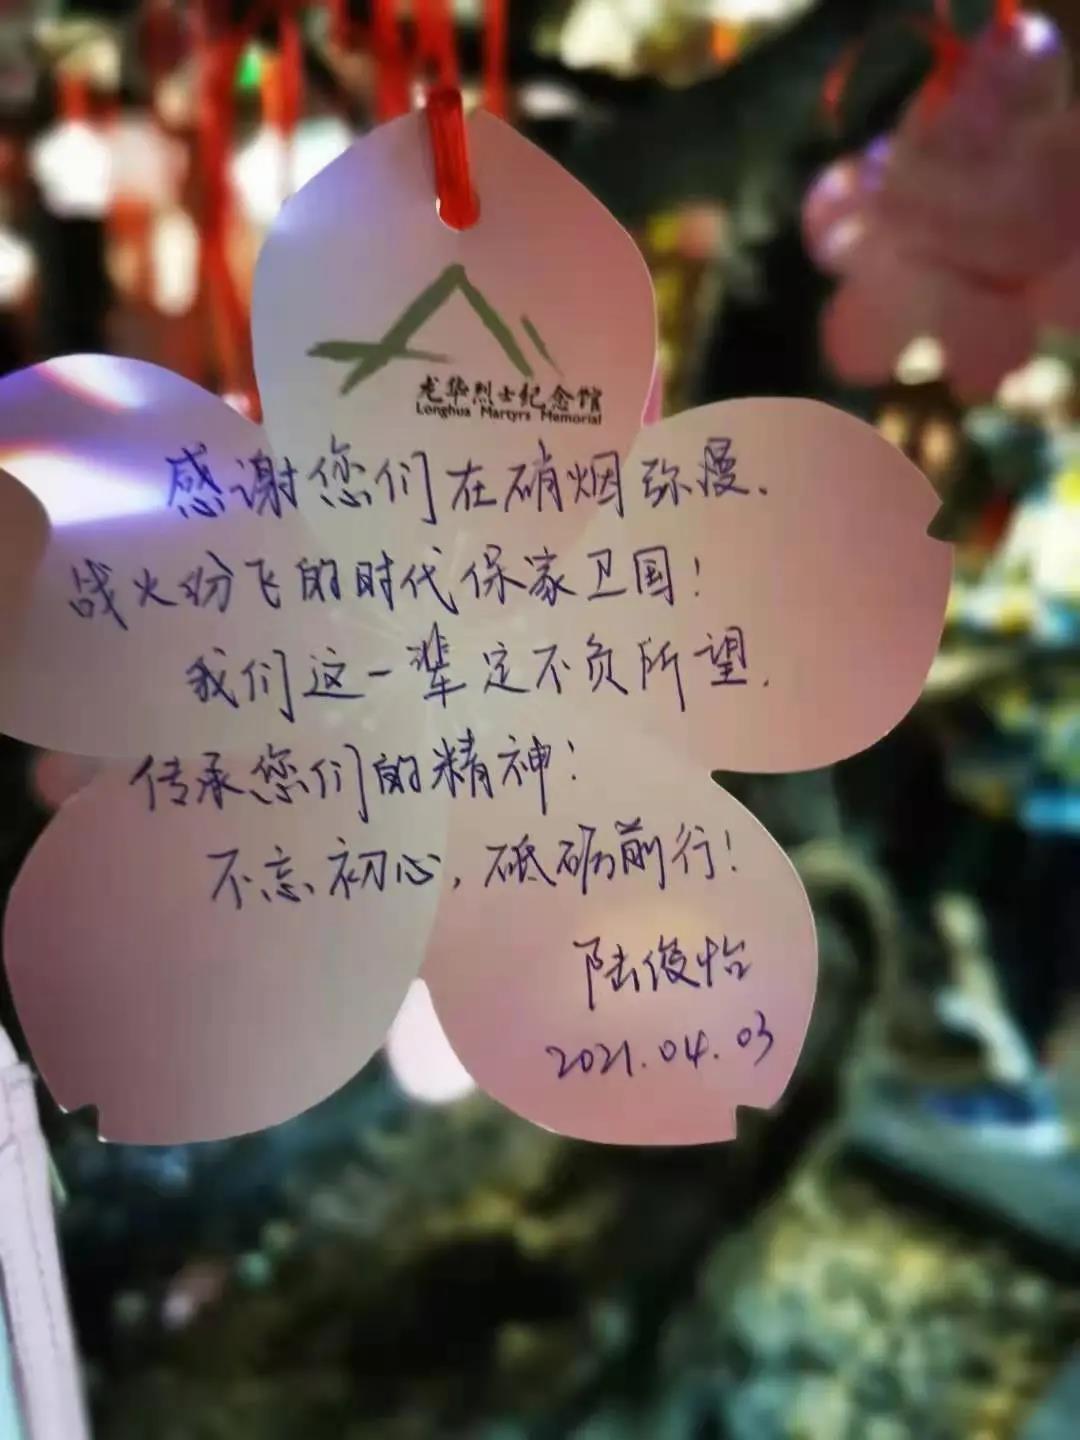 龙华烈士纪念馆
Longhua Martyrs Memorial
感谢您们在硝烟弥漫、
战火纷飞的时代保家卫国!
我们这一辈定不负所望、
传承您们的精神!
不忘初心,砥砺前行!
陆俊怡
2021.04.03